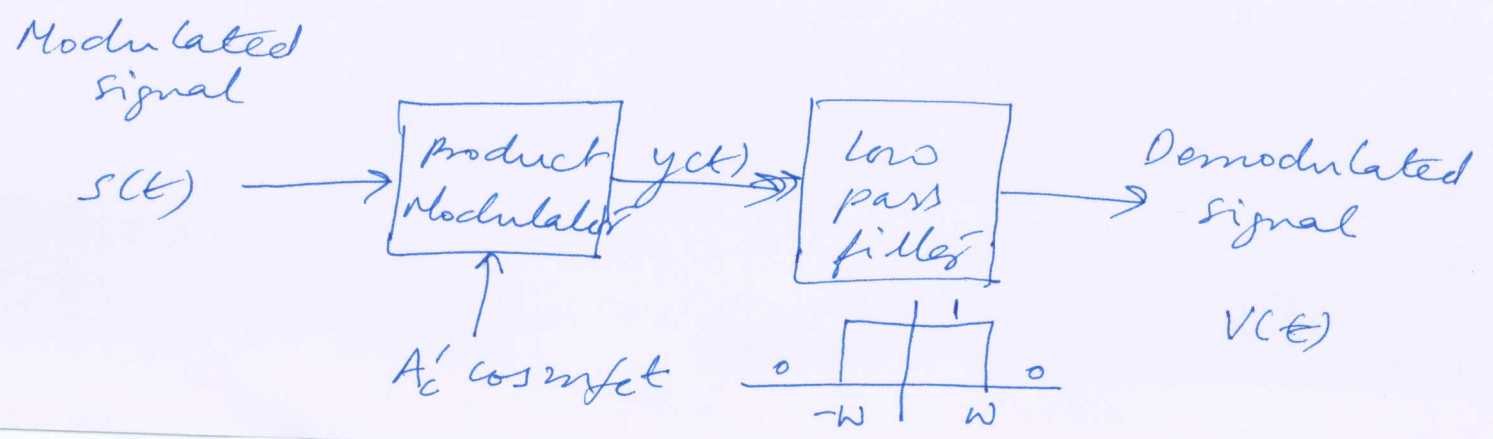 Modulated
signal
s(t)
Product
Modulator
y(t)
Low
pass
filter
Demodulated
signal
v(t)
A'c cos 2πfct
1
0
0
-W
W